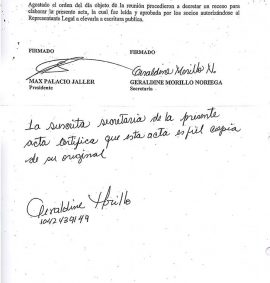 Agotado el orden del dia objeto de la reunión procedieron a decretar un receso para
elaborar la presente acta, la cual fue leida y aprobada por los socios autorizándose al
Representante Legal a elevarla a escritura publica.
FIRMADO FIRMADO
Geraldine Morillo N.
MAX PALACIO JALLER GERALDINE MORILLO NORIEGA
Presidente Secretaria
La suscrita secretaria de la presente
acta certifica que esta acta es fiel copia
de su original
Geraldine Morillo
1042439149